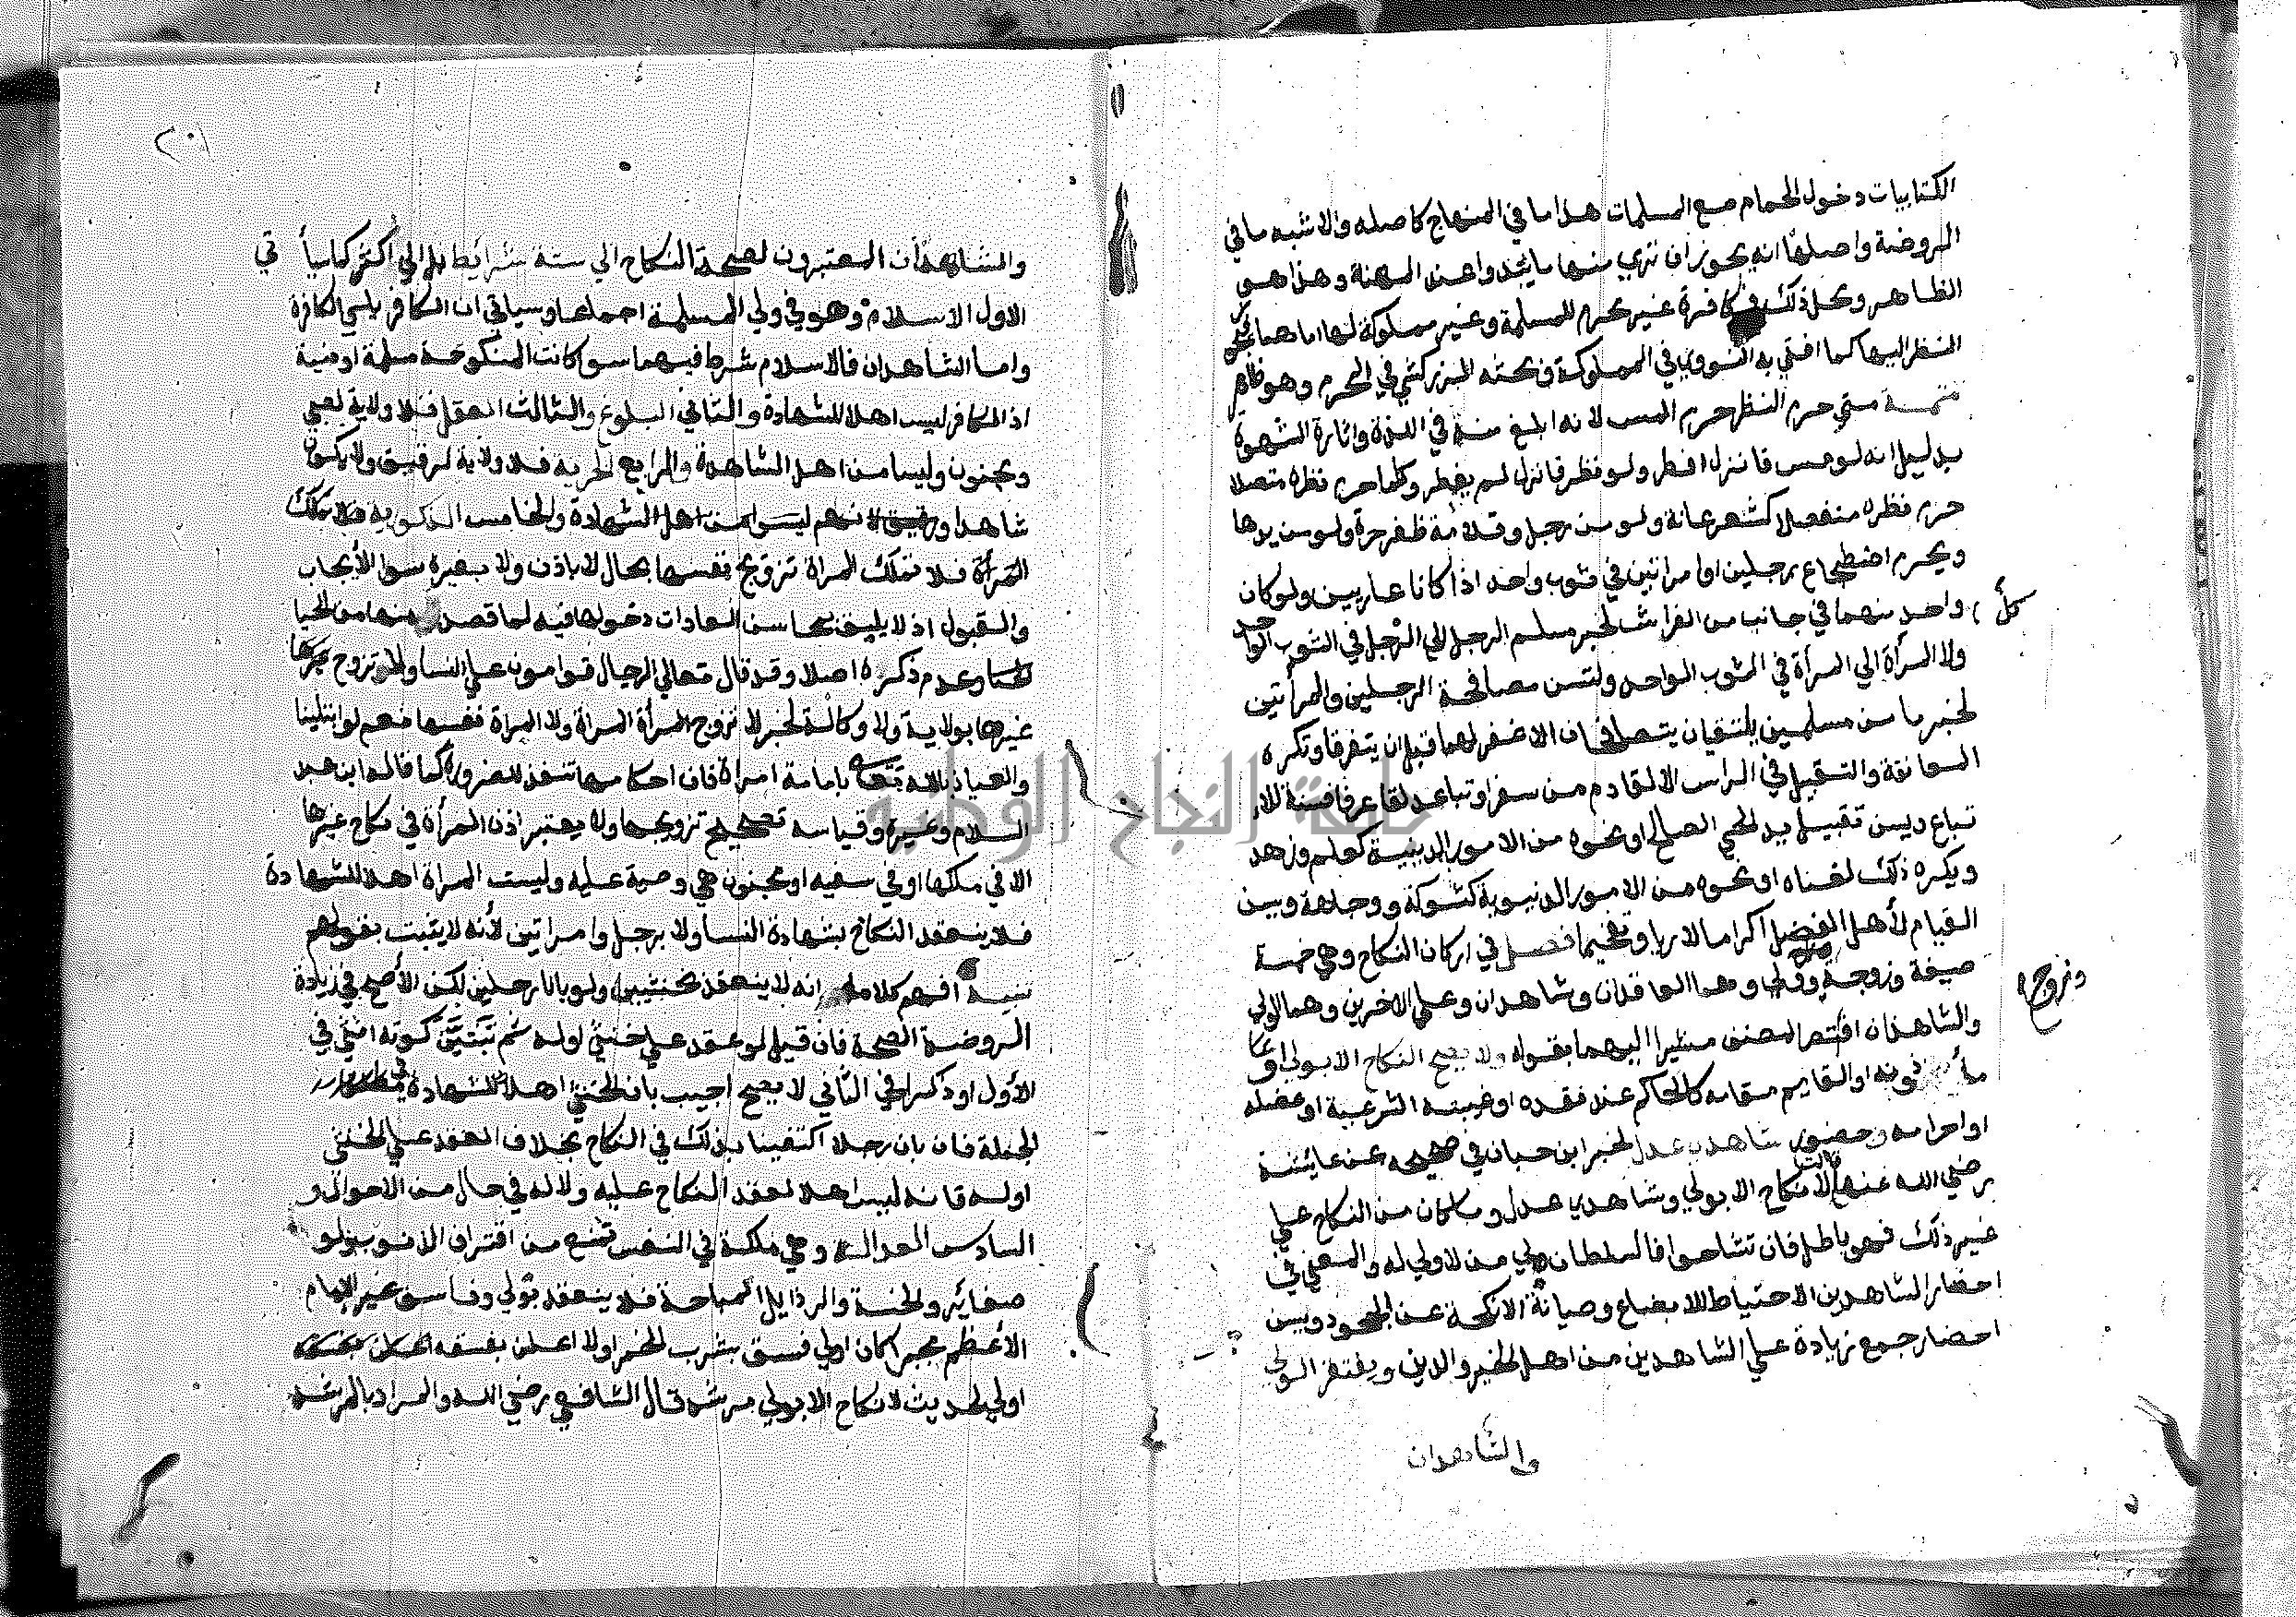 الكتابيات دخول الحمام مع المسلمات هذا ما في المنهاج كاصله والاشبه ما في
الروضة واصلها انه يجوز ان تري منها ما يبدوا عند المهنة وهذا هو
الظاهر ومحل ذلك في كافرة غير محرم للمسلمة وغير مملوكة لها اما هما فيجوز
النظر اليها كما افتي به النووي في المملوكة وبحثه الزركشي في المحرم وهو ظاهر
تتمة متي حرم النظر حرم المس لانه ابلغ منه في اللذة واثارة الشهوة
بدليل انه لو مس فانزل افطر ولو نظر فانزل لم يفطر وكلما حرم نظره متصلا
حرم نظره منفصلا كشعر عانة ولو من رجل وقلامة ظفر حرة ولو من يدها
ويحرم اضطجاع رجلين او امراتين في ثوب واحد اذا كانا عاريين ولو كان
كل
واحد منهما في جانب من الفراش لخبر مسلم الرجل الي الرجل في الثوب الواحد
ولا المرأة الي المرأة في الثوب الواحد وتسن مصافحة الرجلين والمرأتين
لخبر ما من مسلمين يلتقيان يتصافحان الا غفر لهما قبل ان يتفرقا وتكره
المعانقة والتقبيل في الراس الا لقادم من سفر او تباعد لقا عرفا فسنة للا
تباع ويسن تقبيل يد الحي الصالح او نحوه من الامور الدينية كعلم وزهد
ويكره ذلك لغناه او نحوه من الامور الدنيوية كشوكة ووجاهة ويسن
القيام لأهل الفضل اكراما لا ريا وتفخيما فصل في اركان النكاح وهي خمسة
صيغة وزوجة وولي وهما العاقدان وشاهدان وعلي الاخرين وهما الولي
وزوج
والشاهدان اقتصر المصنف مشيرا اليهما بقوله ولا يصح النكاح الا بولي او
مأذونه او القايم مقامه كالحاكم عند فقده او غيبته الشرعية او عضله
او احرامه وحضور شاهدي عدل لخبر ابن حبان في صحيحه عن عايشة
رضي الله عنها لا نكاح الا بولي وشاهدي عدل وما كان من النكاح علي
غير ذلك فهو باطل فان تشاحوا فالسلطان ولي من لا ولي له والمعني في
احضار الشاهدين الاحتياط للابضاع وصيانة الانكحة عن الجحود ويسن
احضار جمع زيادة علي الشاهدين من اهل الخير والدين ويفتقر الولي
والشاهدان
٢٠١
والشاهدان المعتبرون لصحة النكاح الي ستة شرايط بل الي اكثر كما سيأ تي
الاول الاسلام وهو في ولي المسلمة اجماعا وسياتي ان الكافر يلي الكافرة
واما الشاهدان فالاسلام شرط فيهما سوا كانت المنكوحة مسلمة او ذمية
اذ الكافر ليس اهلا للشهادة والثاني البلوغ والثالث العقل فلا ولاية لصبي
ومجنون وليسا من اهل الشهادة والرابع الحرية فلا ولاية لرقيق ولا يكون
شاهدا لانهم ليسوا من اهل الشهادة والخامس الذكورية فلا تملك
المرأة فلا تملك المراة تزويج نفسها بحال لا باذن ولا بغيره سوا الأيجاب
والقبول اذ لا يليق بمحاسن العادات دخولها فيه لما قصد منها من الحيا
وعدم ذكره اصلا وقد قال تعالي الرجال قوامون علي النسا ولا تزوج
غيرها بولاية ولا وكالة لخبر لا تزوج المرأة المراة ولا المراة نفسها نعم لو ابتلينا
والعياذ بالله تعالي بامامة امراة فان احكامها تنفذ للضرورة كما قاله ابن عبد
السلام وغيره وقياسه تصحيح تزويجها ولا يعتبر اذن المرأة في نكاح غيرها
الا في ملكها او في سفيه او مجنون هي وصية عليه وليست المراة اهلا للشهادة
فلا ينعقد النكاح بشهادة النسا ولا برجل وامراتين لأنه لا يثبت بقولهم
تنبيه افهم كلامه انه لا ينعقد بخنثيين ولو بانا رجلين لكن الأصح في زيادة
الروضة الصحة فان قيل لو عقد علي خنثي اوله ثم تبين كونه انثي في
الأول او ذكرا في الثاني لا يصح اجيب بان الخنثي اهلا للشهادة في
الجملة فان بان رجلا اكتفينا بذلك في النكاح بخلاف العقد علي الخنثي
اوله فانه ليس اهلا لعقد النكاح عليه ولا له في حال من الاحوال و
السادس العدالة وهي ملكة في النفس تمنع من اقتراف الذنوب ولو
صغائر والخسة والرذايل المباحة فلا ينعقد بولي وفاسق غير الامام
الأعظم مجبرا كان اولي فسق بشرب الخمر اولا اعلن بفسقه
اولي لحديث لا نكاح الا بولي مرشد قال الشافعي رضي الله والمراد بالمرشد
جامعة النجاح الوطنية